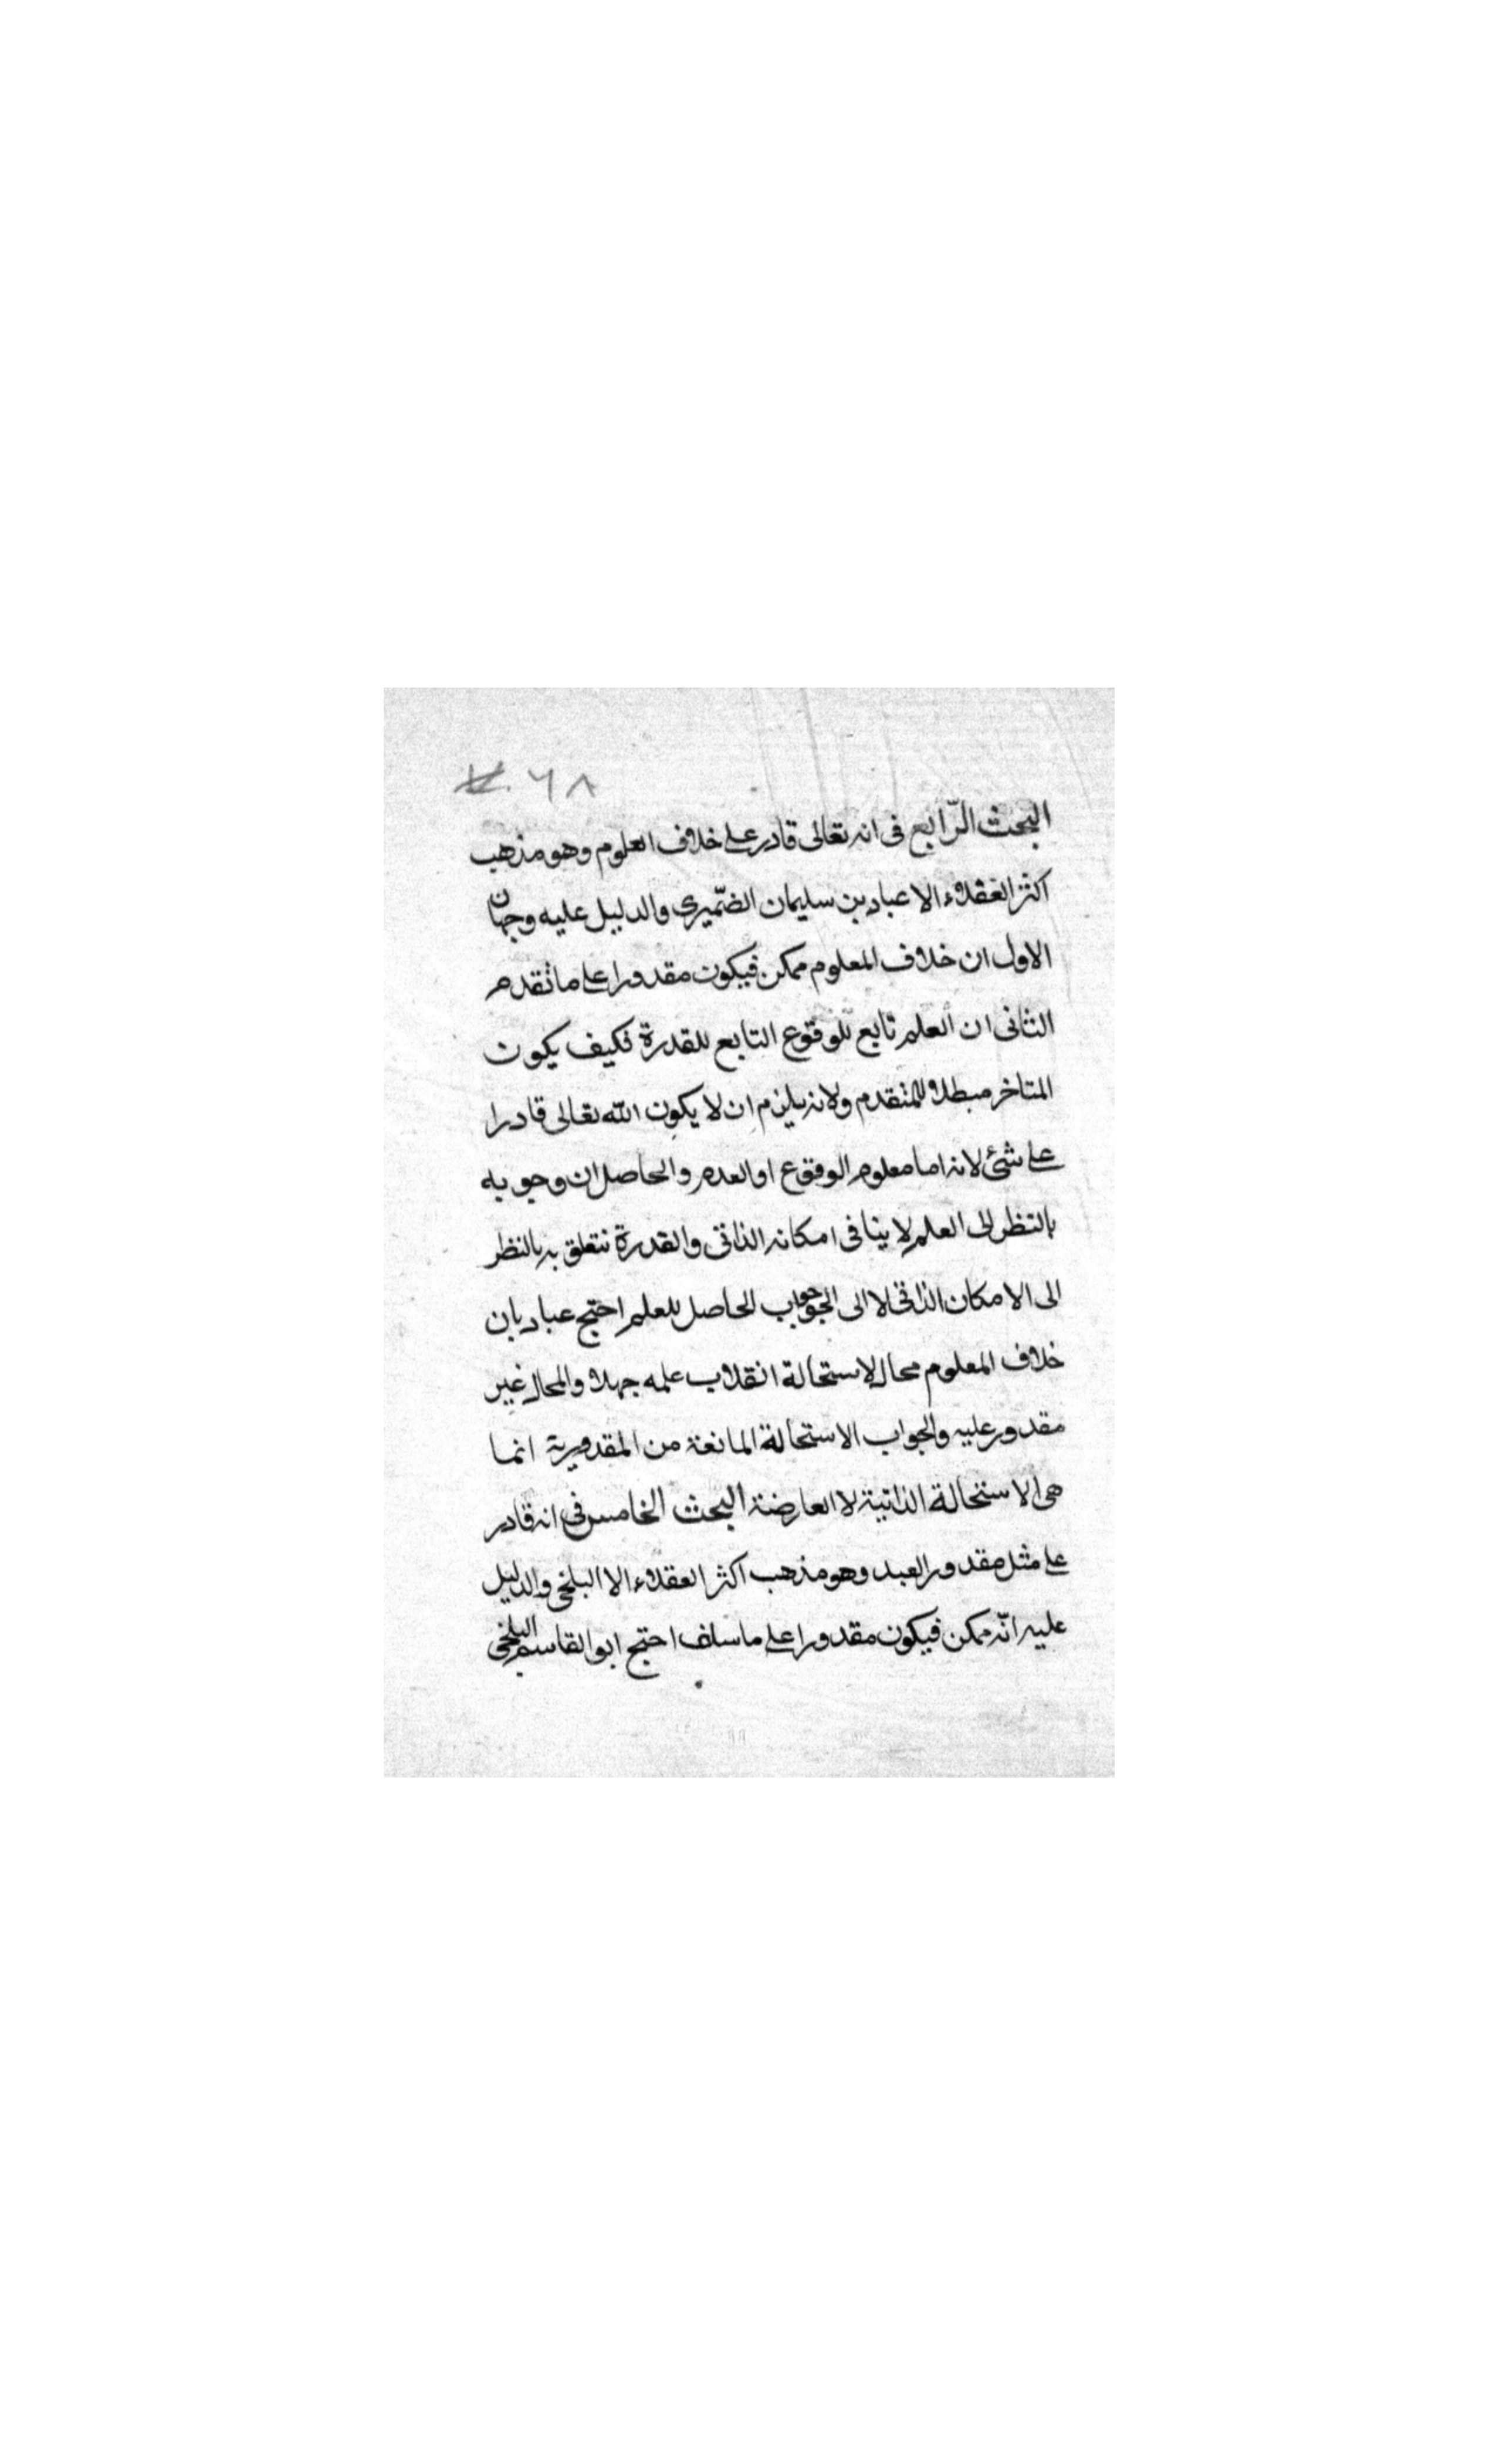 ٦٨
البحث الرّابع فى انه تعالى قادر على خلاف العلوم وهو مذهب
اكثر العقلاء الا عباد بن سليمان الضّميرى والدليل عليه وجهان
الاول ان خلاف المعلوم ممكن فيكون مقدورا على ما تقدم
الثانى ان العلم تابع للوقوع التابع للقدرة فكيف يكون
المتاخر مبطلا للمتقدم ولانه يلزم ان لا يكون الله تعالى قادرا
على شئ لانه اما معلوم الوقوع او العدم والحاصل ان وجوبه
بالنظر الى العلم لا ينافى امكانه الذاتى والقدرة تتعلق به بالنظر
الى الامكان الذاتى لا الى الحاصل للعلم احتج عباد بان
خلاف المعلوم محال لاستحالة انقلاب علمه جهلا والمحال غير
مقدور عليه والجواب الاستحالة المانعة من المقدورية انما
هى الاستحالة الذاتية لا العارضة البحث الخامس فى انه قادر
على مثل مقدور العبد وهو مذهب اكثر العقلاء الا البلخى والدليل
عليه انّه ممكن فيكون مقدورا على ما سلف احتج ابو القاسم البلخى